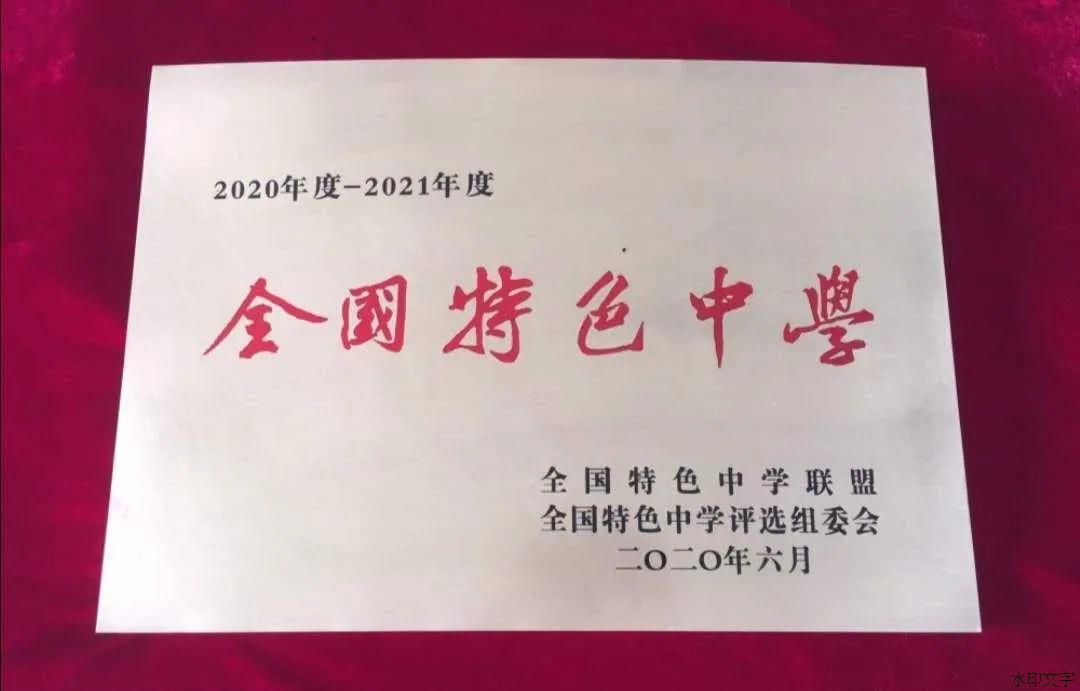 2020年度-2021年度
全國特色中學
全国特色中学联盟
全国特色中学评选组委会
二〇二〇年六月
水印文字